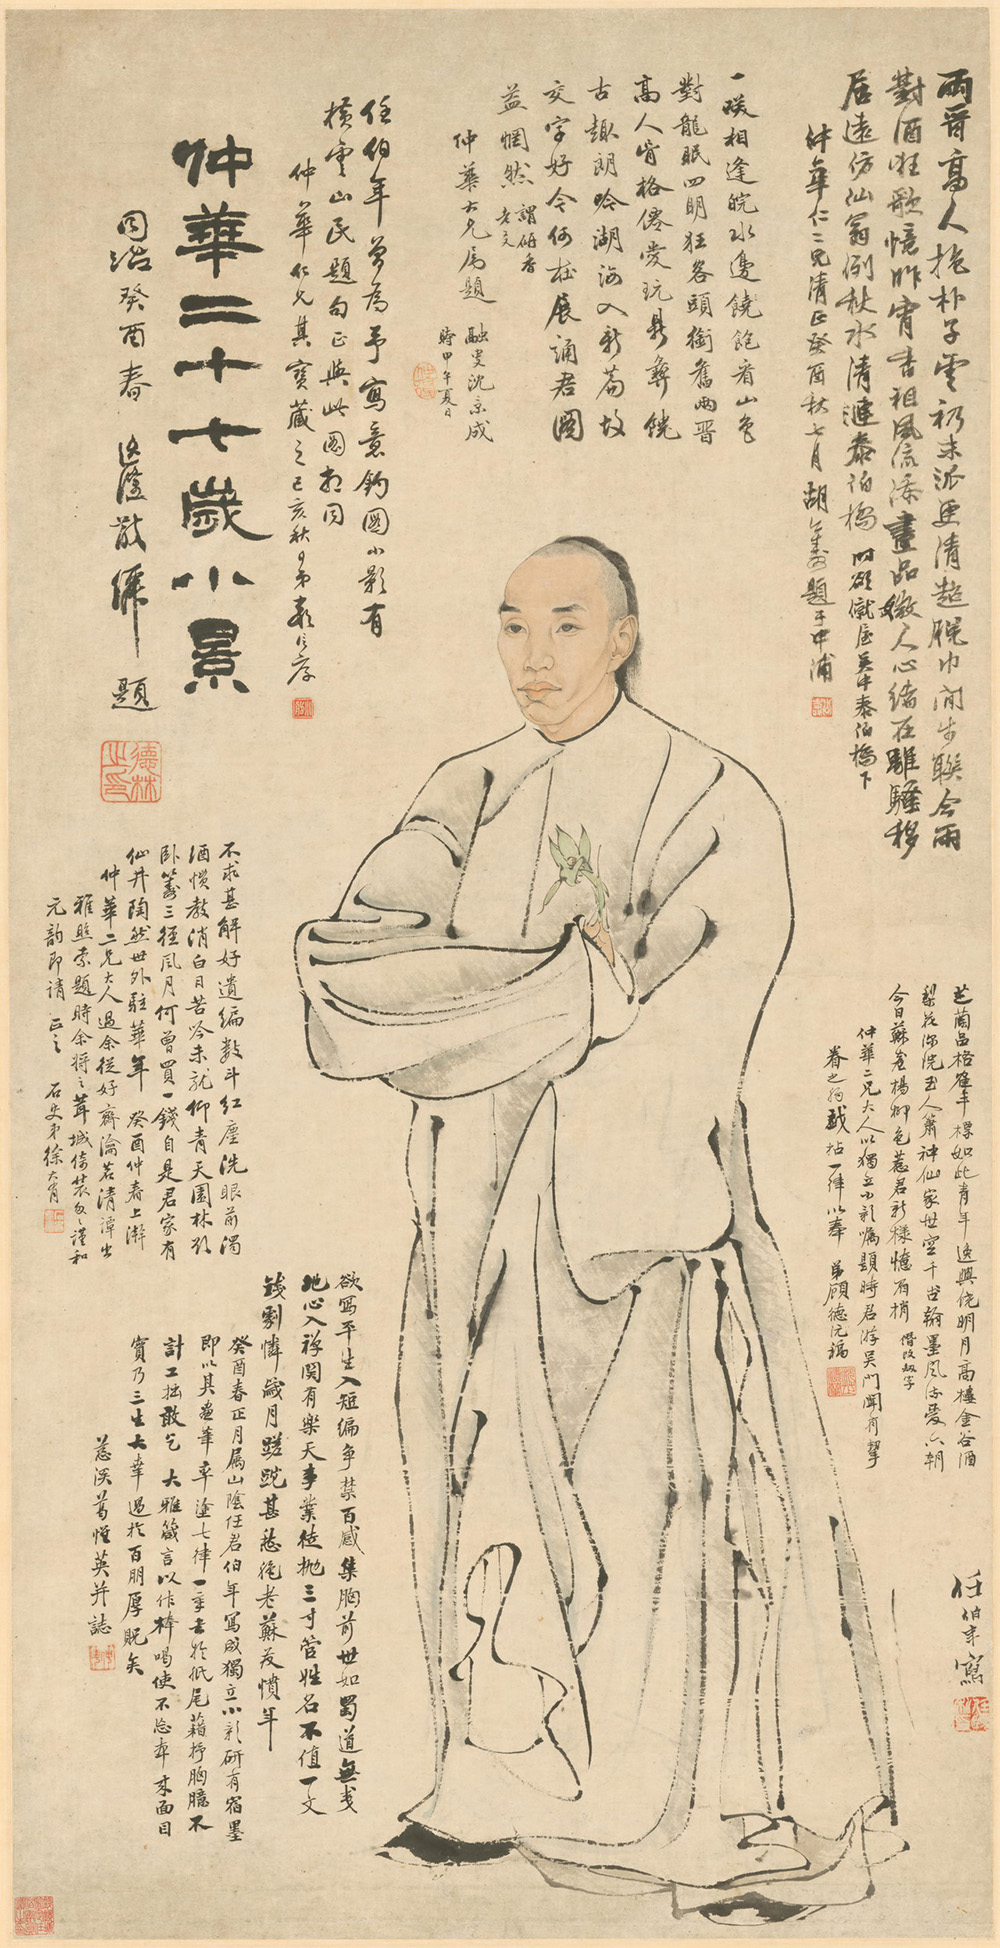 仲華二十七歲小景
同治癸酉春
題
德林
之印
兩晉高人抱朴子雲礽末派更清超脫巾閒步聯今雨
對酒狂歌憶昨宵書祖風流添畫品
人心緒在離騷移
居遠仿仙翁例秋水清漣泰伯橋
時欲僦屋吳中泰伯橋下
仲華仁二兄清正癸酉秋七月胡公壽題于申浦
一笑相逢皖水邊饒飽看山色
對龍眠四明狂客頭銜舊兩晉
高人骨格僊愛玩鼎彝饒
古趣朗吟湖海入新篇故
交字好今何在展誦君圖
益惘然
謂研香
老文
仲華大兄屬題
融叟沈景成
時甲午夏日
任伯年曾為予寫意釣圖小影有
橫雲山民題句正與此圖相同
仲華仁兄其寶藏之己亥秋日弟
不求甚解好遺編數斗紅塵洗眼前濁
酒慣教消白日苦吟未就仰青天園林
臥
三徑風月何曾買一錢自是君家有
仙井陶然世外駐華年
癸酉仲春上澣
仲華二兄大人過余從好齋淪茗清譚出
雅照索題時余將之茸城倚裝
謹和
元韵即請正之
石史弟徐大有
芝蘭品格隺丰標如此青年逸興饒明月高樓金谷酒
梨花深院玉人簫神仙家世空千古翰墨風流愛六朝
今日蘇臺楊柳色惹君新樣憶眉梢
借改
字
仲華二兄大人以獨立小影屬題時君游吳門聞有挈
眷之約戲拈一律以奉
弟顧德沅稿
欲寫平生入短編爭禁百感集胸前世如蜀道無夷
地心入禪關有樂天事業徒拋三寸管姓名不值一文
錢劇憐歲月蹉跎甚愁絕老蘇發憤年
癸酉春正月屬山陰任君伯年寫成獨立小影研有宿墨
即以其畫筆率塗七律一章書於紙尾藉抒胸臆不
計工拙敢乞大雅箴言以作棒喝使不忘本來面目
實乃三生大幸過於百朋厚貺矣
慈溪葛惟英并誌
任伯年寫